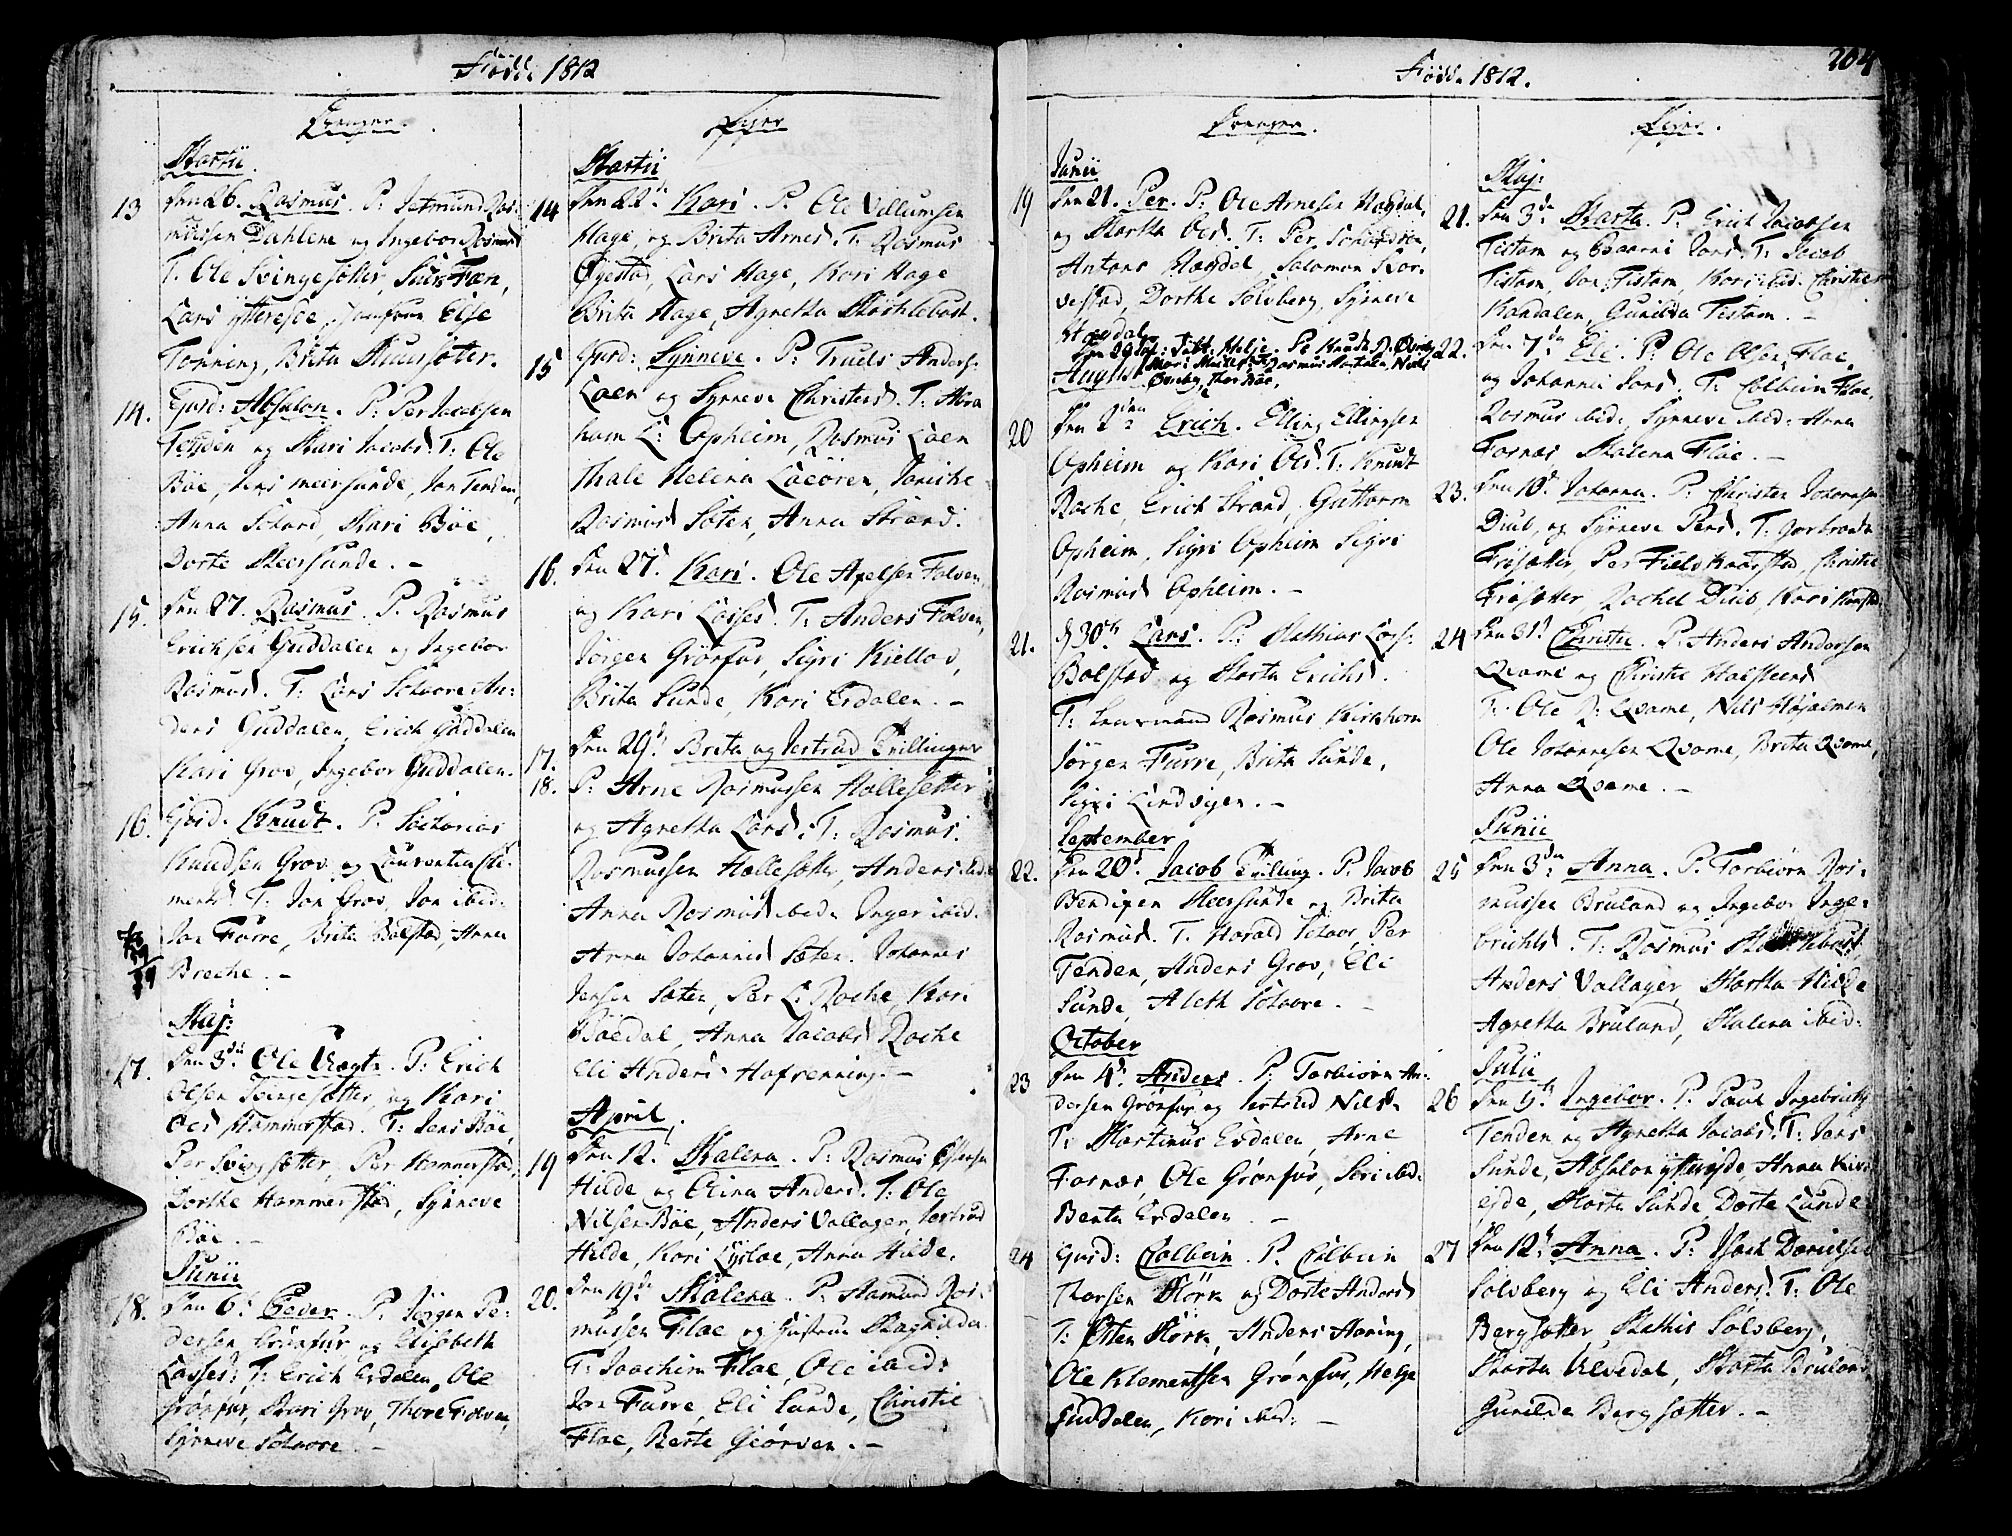 Födde 1812
Drenger.
Martii
13 Den 26. Rasmus. P: Jetmund Ras-
mussen Dahlene og Ingebor Rasmusd
T. Ole Svingesæter, Siur Fæn,
Lars yttereide, Jomfrue Else
Tonning, Brita Muursæter.
14. Ejusd: Absalon. P: Per Jacobsen
Tenden og Mari Jacobsd. T: Ole
Böe, Jens meersunde, Jon Tenden,
Anna Schaard, Mari Böe,
Dorte Meersunde. -
15. Den 27. Rasmus. P. Rasmus
Ericksen Guddalen og Ingebor
Rasmusd. T: Lars Schaare An-
ders Guddalen, Erich Guddalen
Mari Grov, Ingebor Guddalen.
16. Ejusd. Knudt. P. Zacharias
Knudsen Grov og Laurentia Cle-
mentsd T. Jon Grov, Jon ibid:
Jon Furre, Brita Bolstad, Anna
Breche. -
Maj:
17. Den 3die Ole Vogt. P: Erich
Olsen Svingesætter og Kari
Olsd Hammerstad. T: Jens Böe,
Per Svingsætter, Per Hammerstad,
Dorthe Hammerstad, Synneve
Böe. -
Junii
18. Den 6t Peder. P. Jörgen Pe-
dersen Grönfur og Elisabeth
Lassesd: T: Erich Erdalen, Ole
Grönfur, Mari Grov, Thore Folven,
Synneve Schaare. -
Piger
Martii
14 Den 22de Kari. P: Ole Villumsen
Hage, og Brita Arnesd. T: Rasmus
Øyestad, Lars Hage, Kari Hage
Brita Hage, Agnetha Mæchlebust.
15 Ejusd: Synneve. P: Truels Anders:
Loen og Synneve Christensd. T: Abra
ham L: Opheim, Rasmus Loen
Thale Helena Loeören, Janiche
Rasmusd Sæten, Anna Strand.
16. Den 27d Kari. Ole Apelsen Folven
og Kari Lassesd. T: Anders Folven,
Jörgen Grönfur, Sigri Kiellov,
Brita Sunde, Kari Erdalen. -
17. Den 29d Brita og Jertrud Tvillinger
18. P: Arne Rasmussen Hallesetter
og Agnetha Larsd. T: Rasmus
Rasmussen Hallesætter, Anders ibid:
Anna Rasmusd ibid: Inger ibid.
Anna Johannisd Sæten. Johannes
Jensen Sæten, Per L: Roche, Kari
Anna Jacobsd Roche
Eli Andersd Hafrenning. -
April.
19 Den 12. Malena. P: Rasmus Estensen
Hilde og Olina Andersd. T: Ole
Nilsen Böe, Anders Vollager, Jertrud
Hilde, Kari Lysloe, Anna Hilde.
20. Den 19de Malena. P: Aamund Ras-
mussen Floe og Hustrue Magnilda
T: Joachim Floe, Ole ibid:
Jon Furre, Eli Sunde, Christie
Floe, Berte Giörven. -
204
Födde 1812.
Drenger.
Junii
19 Den 21. Per. P: Ole Arnesen Hægdal,
og Martha Olsd. T: Per Schiædsen,
Antons Hægdal, Salomon Kor-
vestad, Dorthe Solsberg, Synneve
Hægdal
August
20 Den 2den Erich. Elling Ellingsen
Opheim og Kari Olsd. T: Knudt
Roche, Erich Strand, Guttorm
Opheim, Sigri Opheim Sigri
Rasmusd Opheim. -
21. d 30th Lars. P: Mathias Lars:
Bolstad og Marta Erichsd.
T: Lensmand Rasmus Kirchhorn
Jörgen Furre, Brita Sunde,
Sigri Lindvigen. -
September
22. Den 20d. Jacob Tvilling. P. Jacob
Bendixen Meersunde og Brita
Rasmusd. T. Harald Schaar, Per
Tenden, Anders Grov, Eli
Sunde, Aleth Schaare. -
October
23 Den 4d. Anders. P: Torbiörn An-
dersen Grönfur og Jertrud Nilsd.
T: Martinus Erdalen, Arne
Fosnæs, Ole Grönfur, Siri ibid.
Benta Erdalen. -
24 Ejusd: Colbein. P. Colbein
Thorsen Mörk og Dorte Andersd
T: Osten Mörk, Anders Aaning,
Ole Klementsen Grönfur, Helge
Guddalen, Kari ibid: -
Piger.
Maj:
21. Den 3de Marta. P: Erich Jacobsen
Tistam og Gaarni Jonsd. T: Jacob
Tistam, Jon Tistam, Kari ibid: Christie
Kandalen, Gunilda Tistam. -
22. Den 7de Eli. P: Ole Olsen Floe,
og Johanne Jonsd. T: Colbein Floe,
Rasmus ibid: Synneve ibid: Anna
Fosnæs, Malena Floe. -
23. Den 10d. Johanna. P: Christen Johannsen
Diub, og Synneve Persd. T: Gorbrandt
Fröisætter, Per Fielskaarstad, Christie
Fröisætter, Rachel Diub, Kari
24 Den 31d Christie. P. Anders Andersen
Qvame og Christie Halsteensd
T. Ole R: Qvame, Nils Höjalmen
Ole Johannesen Qvame, Brita Qvame,
Anna Qvame. -
Junii
25 Den 3die Anna. P. Torbiörn Ras-
mussen Bruland og Ingebor Inge-
brichtsd. T: Rasmus
Anders Vollager, Martha Hilde
Agnetha Bruland, Malena ibid:
Julii
26 Den 5te Ingebor. P. Paul Ingebrigts
Tenden og Agnetha Jacobsd. T: Jens
Sunde, Absalon yttereide, Anna
ejde, Marta Sunde, Dorte Sunde
27 Den 12d. Anna. P: Isach Danielsen
Solsberg og Eli Andersd. T: Ole
Bergsætter, Mathis Solsberg,
Marta Ulvedal, Marta Bruland
Gunilda Bergsætter. -